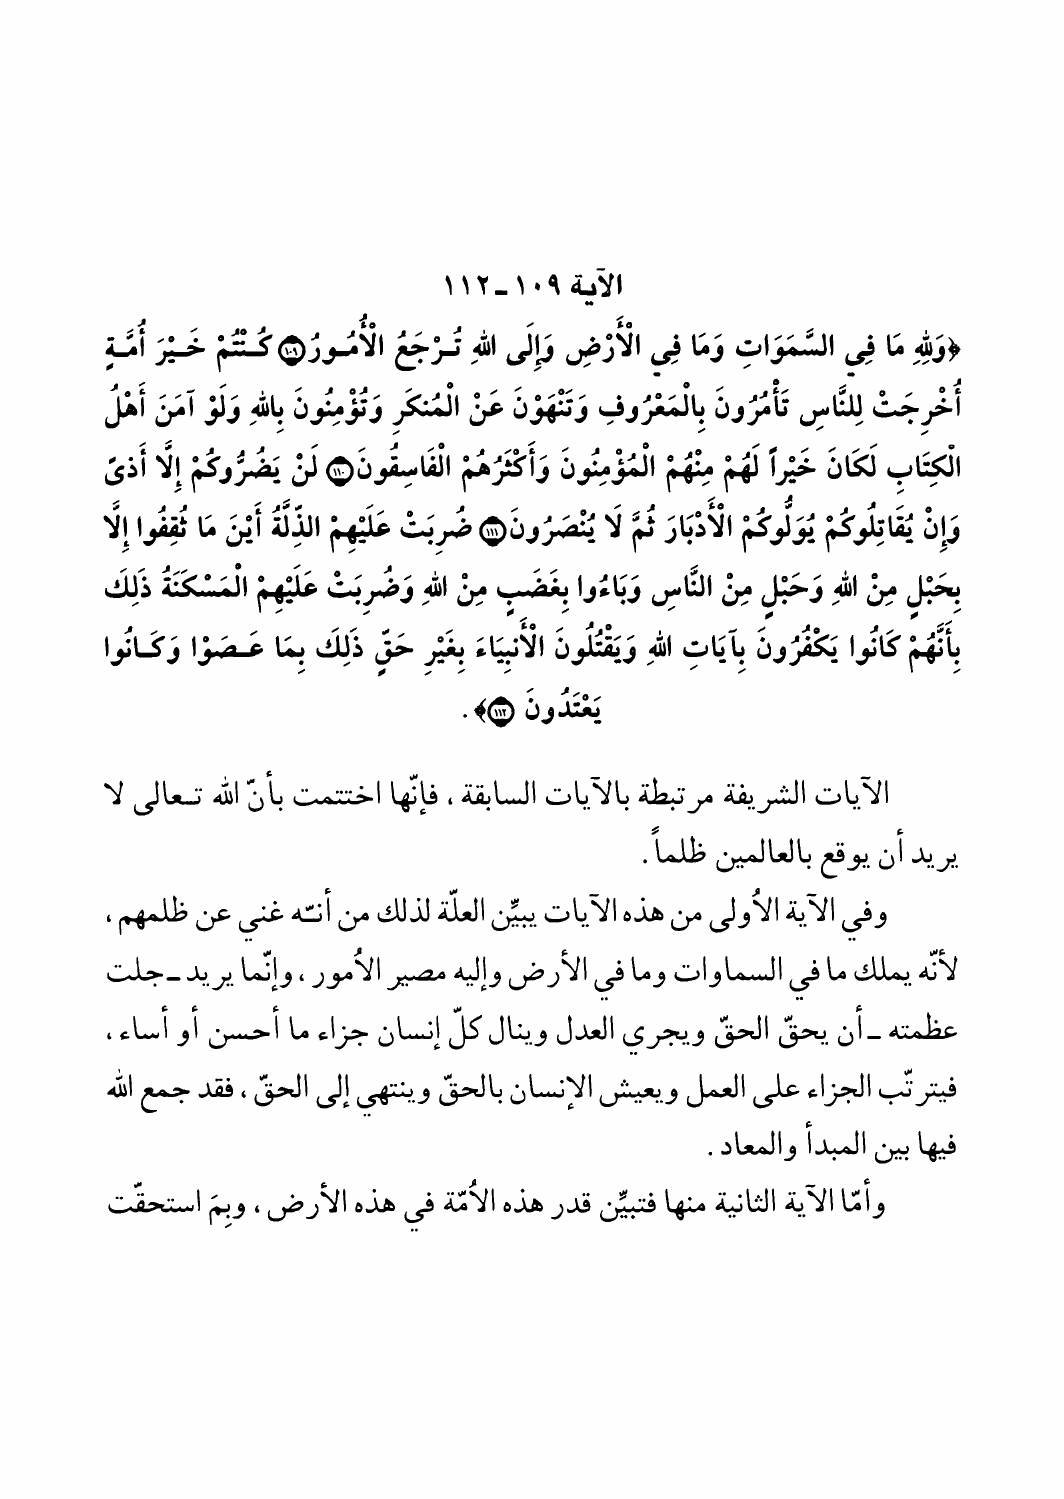 الآية ١٠٩ ـ ١١٢
﴿وَلِلهِ مَا فِي السَّمَوَاتِ وَمَا فِي الْأَرْضِ وَإِلَى اللهِ تُـرْجَعُ الْأُمُـورُ ١٠٩ كُـنْتُمْ خَـيْرَ أُمَّـةٍ
أُخْرِجَتْ لِلنَّاسِ تَأْمُرُونَ بِالْمَعْرُوفِ وَتَنْهَوْنَ عَنْ الْمُنكَرِ وَتُؤْمِنُونَ بِاللهِ وَلَوْ آمَنَ أَهْلُ
الْكِتَابِ لَكَانَ خَيْراً لَهُمْ مِنْهُمْ الْمُؤْمِنُونَ وَأَكْثَرُهُمْ الْفَاسِقُونَ ١١٠ لَنْ يَضُرُّوكُمْ إِلَّا أَذىً
وَإِنْ يُقَاتِلُوكُمْ يُوَلُّوكُمْ الْأَدْبَارَ ثُمَّ لَا يُنْصَرُونَ ١١١ ضُرِبَتْ عَلَيْهِمْ الذِّلَّةُ أَيْنَ مَا ثُقِفُوا إِلَّا
بِحَبْلٍ مِنْ اللهِ وَحَبْلٍ مِنْ النَّاسِ وَبَاءُوا بِغَضَبٍ مِنْ اللهِ وَضُرِبَتْ عَلَيْهِمْ الْمَسْكَنَةُ ذَلِكَ
بِأَنَّهُمْ كَانُوا يَكْفُرُونَ بِآيَاتِ اللهِ وَيَقْتُلُونَ الْأَنبِيَاءَ بِغَيْرِ حَقٍّ ذَلِكَ بِمَا عَـصَوْا وَكَـانُوا
يَعْتَدُونَ ١١٢﴾ .
الآيات الشريفة مرتبطة بالآيات السابقة ، فإنّها اختتمت بأنّ الله تـعالى لا
يريد أن يوقع بالعالمين ظلماً .
وفي الآية الأولى من هذه الآيات يبيِّن العلّة لذلك من أنـّه غني عن ظلمهم ،
لأنّه يملك ما في السماوات وما في الأرض وإليه مصير الأمور ، وإنّما يريد ـ جلت
عظمته ـ أن يحقّ الحقّ ويجري العدل وينال كلّ إنسان جزاء ما أحسن أو أساء ،
فيترتّب الجزاء على العمل ويعيش الإنسان بالحقّ وينتهي إلى الحقّ ، فقد جمع الله
فيها بين المبدأ والمعاد .
وأمّا الآية الثانية منها فتبيِّن قدر هذه الأمّة في هذه الأرض ، وبِمَ استحقّت